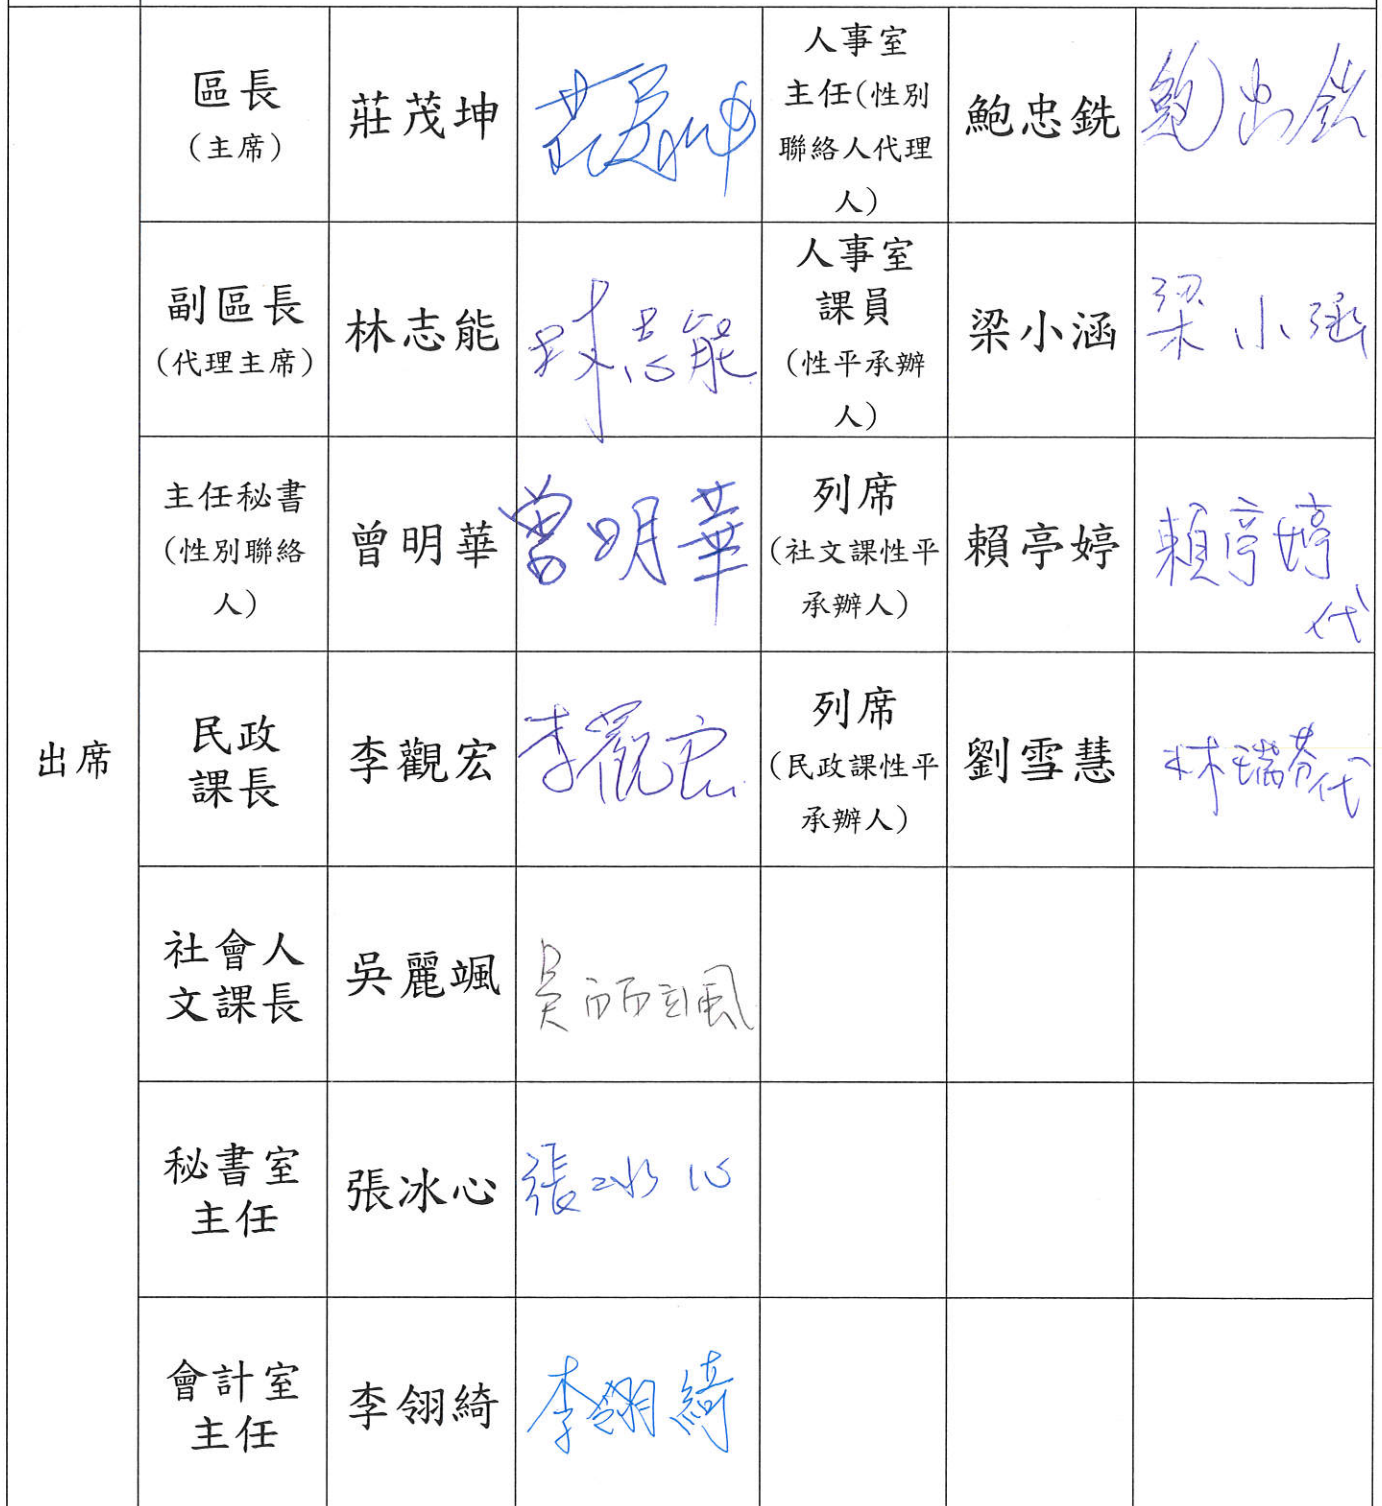 出席
區長
(主席)
莊茂坤
莊茂坤
人事室
主任(性別
聯絡人代理
人)
鮑忠銑
鮑忠銑
副區長
(代理主席)
林志能
林志能
人事室
課員
(性平承辦
人)
梁小涵
梁小涵
主任秘書
(性別聯絡
人)
曾明華
曾明華
列席
(社文課性平
承辦人)
賴亭婷
賴亭婷
代
民政
課長
李觀宏
李觀宏
列席
(民政課性平
承辦人)
劉雪慧
林瑞芬代
社會人
文課長
吳麗颯
吳麗颯
秘書室
主任
張冰心
張冰心
會計室
主任
李翎綺
李翎綺